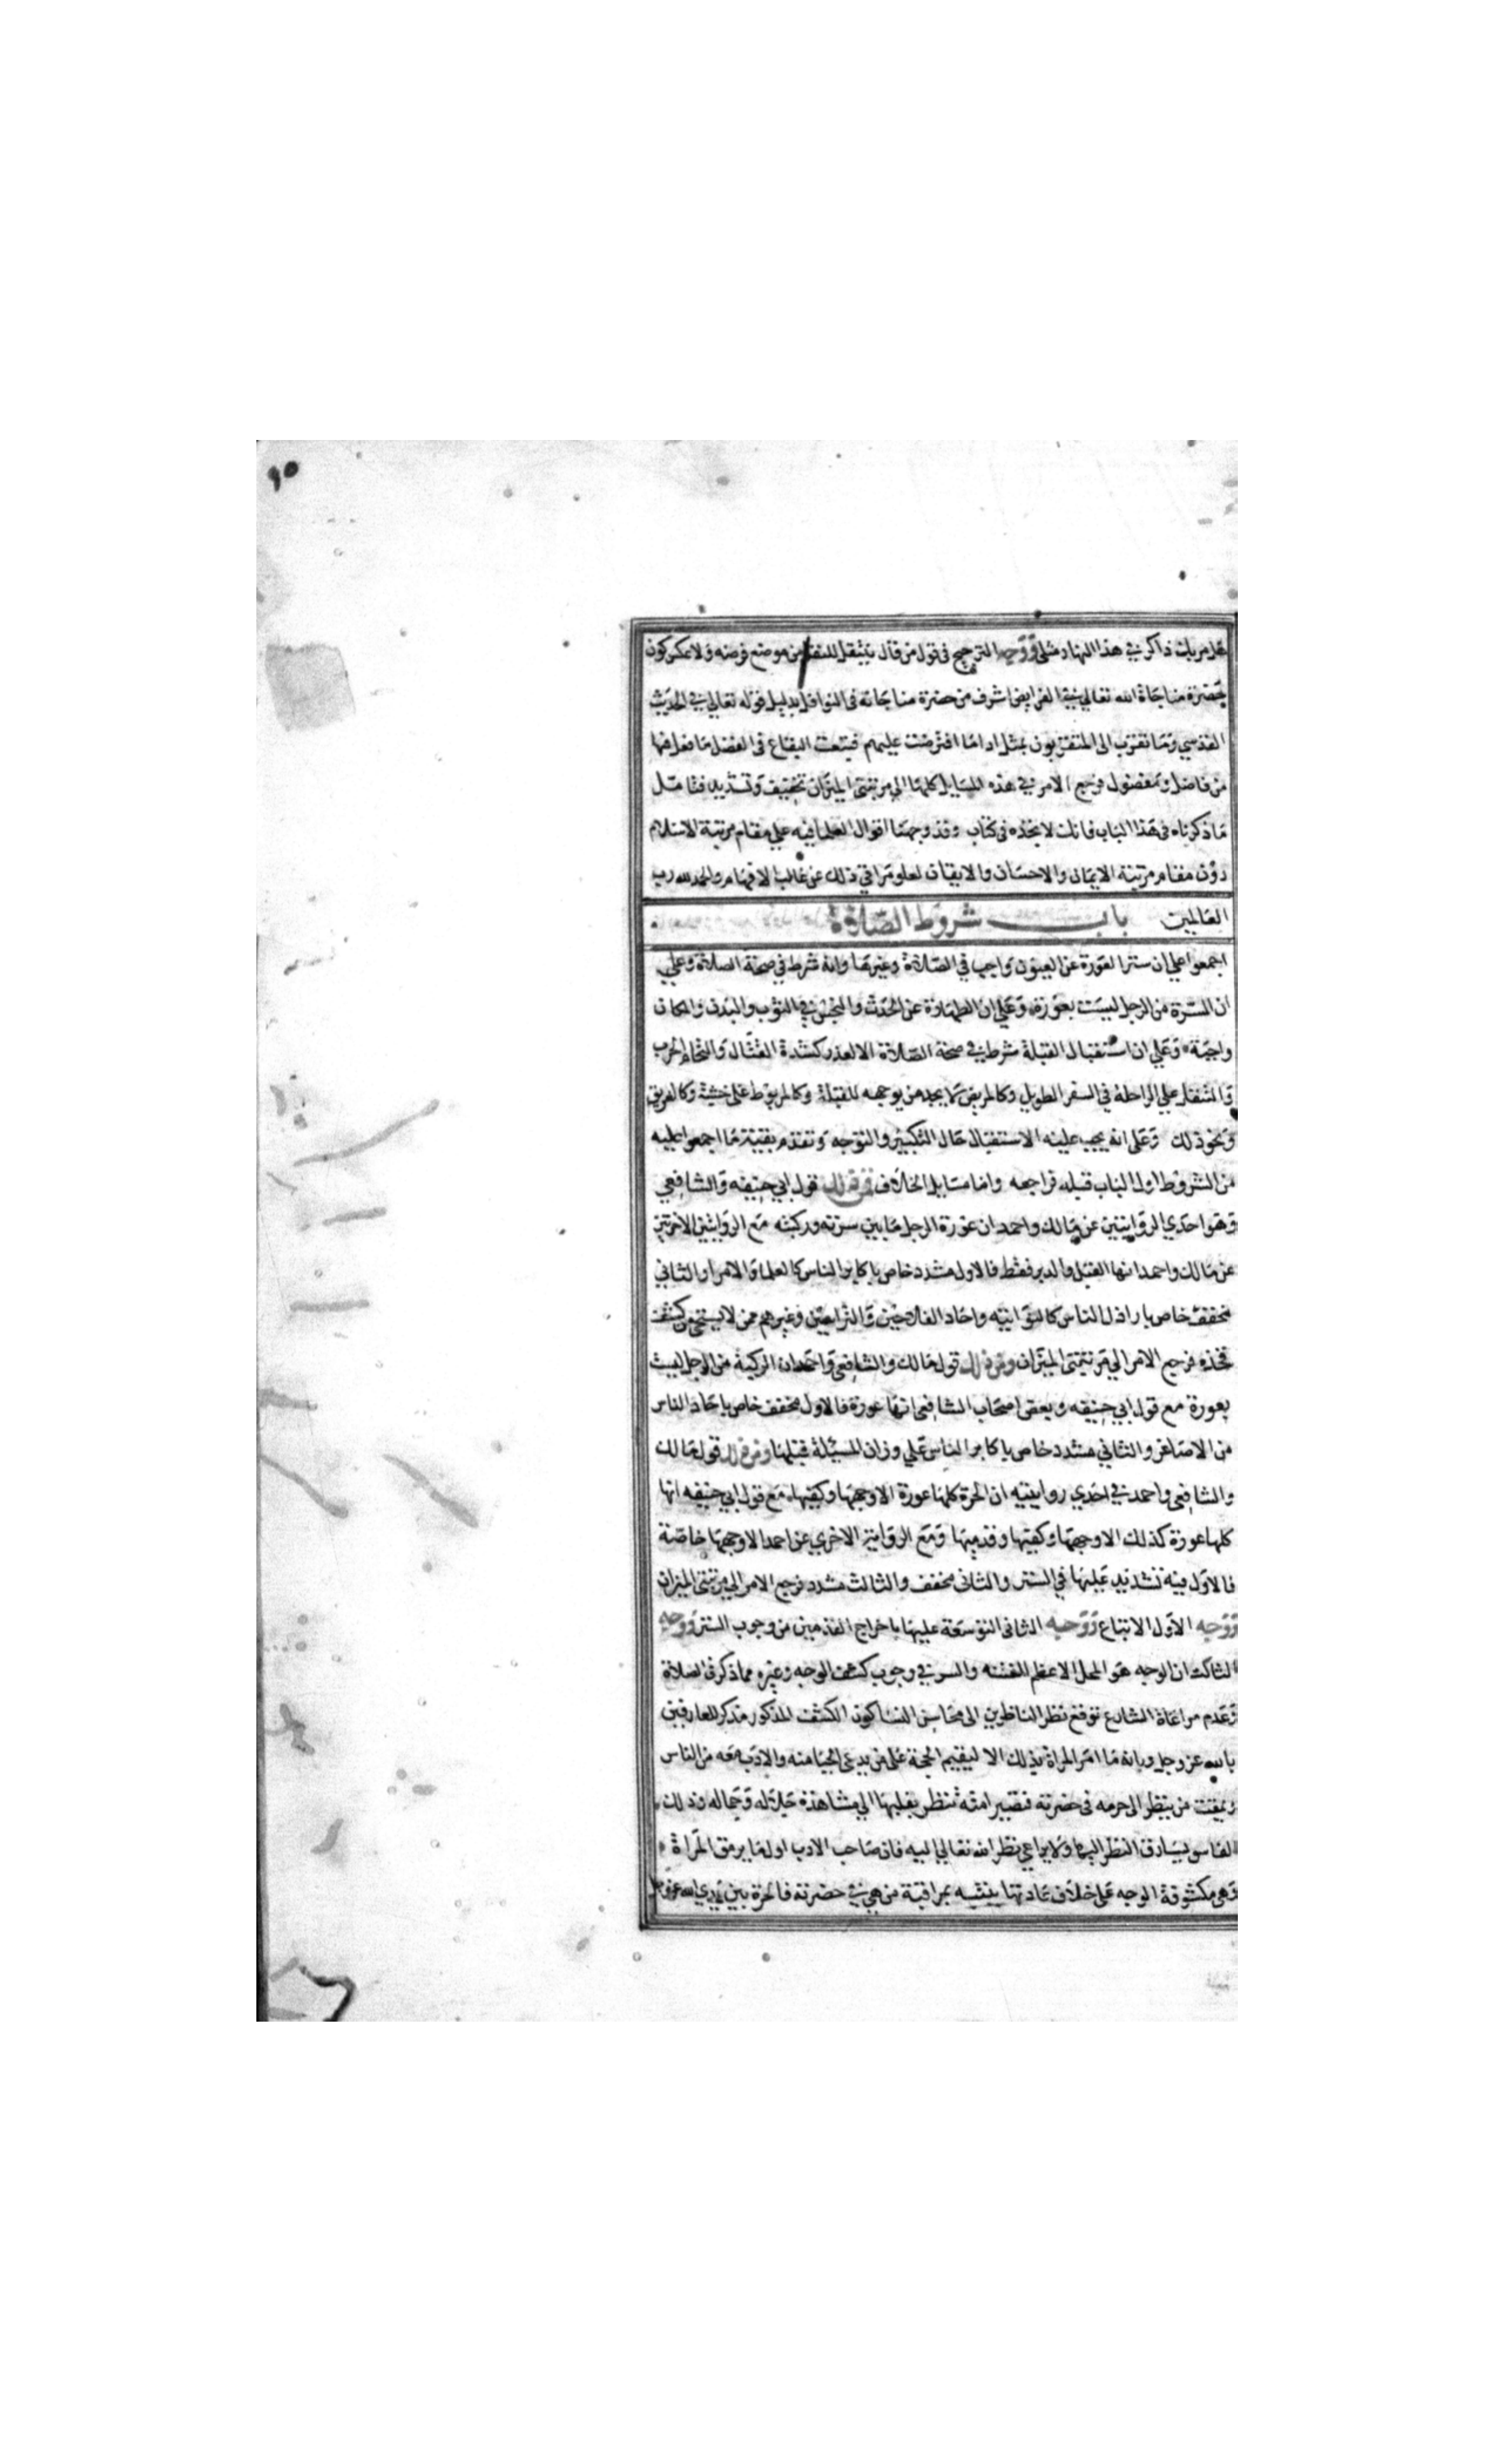 ٩٥
هل مر بك ذاكر في هذا النهار مثلي ووجه الترجيح في قول من قال ينتقل للنفل من موضع فرضه ولا عكس كون
حضرة مناجاة الله تعالي في الفرايض اشرف من حضرة مناجاته في النوافل بدليل قوله تعالي في الحديث
القدسي وما تقرب الى المتقربون بمثل اداما افترضت عليهم فتبعت البقاع في الفضل ما فعل فيها
من فاضل ومفضول فرجع الامر في هذه المسايل كلها الي مرتبتي الميزان تخفيف وتشديد فتامل
ما ذكرناه في هذا الباب فانك لا تجده في كتاب وقد وجهنا اقوال العلما فيه علي مقام مرتبة الاسلام
دون مقام مرتبة الايمان والاحسان والايقان لعلو مراقي ذلك عن غالب الافهام والحمد لله رب
العالمين باب شروط الصلاة
اجمعوا علي ان ستر العورة عن العيون واجب في الصلاة وغيرها وانه شرط في صحة الصلاة وعلي
ان السرة من الرجل ليست بعورة وعلي ان الطهارة عن الحدث والنجس في الثوب والبدن والمكان
واجبة وعلي ان استقبال القبلة شرط في صحة الصلاة الا لعذر كشدة القتال والتحام الحرب
والمتنفل علي الراحلة في السفر الطويل وكالمريض لا يجد من يوجهه للقبلة وكالمربوط على خشبة وكالغريق
ونحو ذلك وعلى انه يجب عليه الاستقبال حال التكبير والتوجه وتقدم بقية ما اجمعوا عليه
من الشروط اول الباب قبله فراجعه واما مسايل الخلاف فمن ذلك قول ابي حنيفه والشافعي
وهو احدي الروايتين عن مالك واحمد ان عورة الرجل ما بين سرته وركبته مع الروايتين الاخرتين
عن مالك واحمد انها القبل والدبر فقط فالاول مشدد خاص باكابر الناس كالعلما والامرا والثاني
مخفف خاص باراذل الناس كالنواتيه واحاد الفلاحين والتراسين وغيرهم ممن لا يستحي من كشف
فخذه فرجع الامر الي مرتبتي الميزان ومن ذلك قول مالك والشافعي واحمد ان الركبة من الرجل ليست
بعورة مع قول ابي حنيفه وبعض اصحاب الشافعي انها عورة فالاول مخفف خاص باحاد الناس
من الاصاغر والثاني مشدد خاص باكابر الناس علي وزان المسئلة قبلها ومن ذلك قول مالك
والشافعي واحمد في احدي روايتيه ان الحرة كلها عورة الا وجهها وكفيها مع قول ابي حنيفه انها
كلها عورة كذلك الا وجهها وكفيها وقدميها ومع الرواية الاخري عن احمد الا وجهها خاصة
فالاول فيه تشديد عليها في الستر والثاني مخفف والثالث مشدد فرجع الامر الي مرتبتي الميزان
ووجه الاول الاتباع ووجه الثاني التوسعة عليها باخراج القدمين من وجوب الستر ووجه
الثالث ان الوجه هو المحل الاعظم للفتنه والسر في وجوب كشف الوجه وغيره مما ذكر في الصلاة
وعدم مراعاة الشارع توقع نظر الناظرين الى محاسن النسا كون الكشف المذكور مذكر للعارفين
بالله عز وجل وبانه ما امر المراة بذلك الا ليقيم الحجة على من يدعي الحيا منه والادب معه من الناس
ويمقت من ينظر الى حرمه في حضرته فتصير امته تنظر بقلبها الي مشاهدة جلاله وجماله وذلك
الفاسق يسارق النظر اليها ولا يراعي نظر الله تعالي اليه فان صاحب الادب اول ما يرمق المراة
وهي مكشوفة الوجه على خلاف عادتها يتنبه بمراقبة من هي في حضرته فالحرة بين يدي الله عز وجل